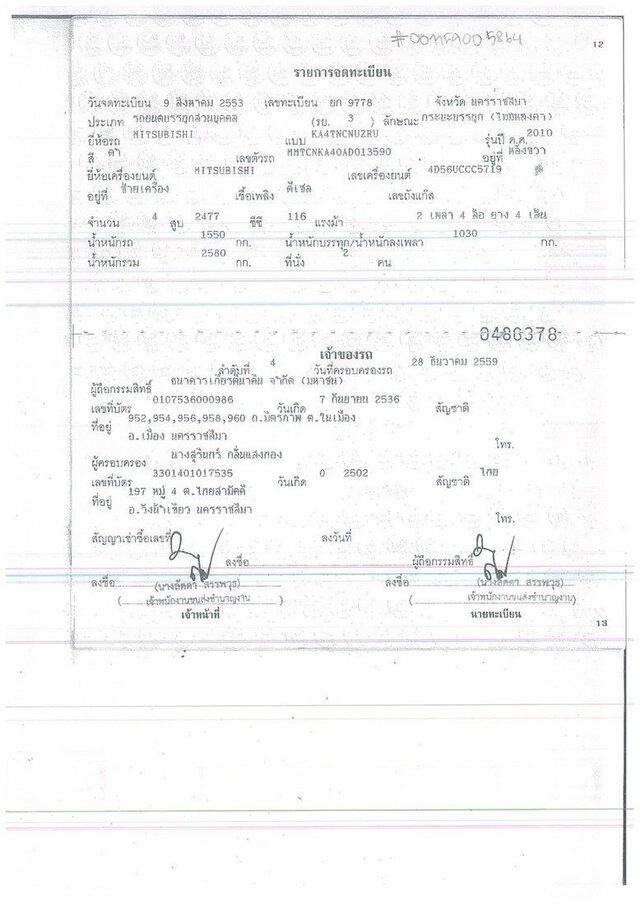 12
รายการจดทะเบียน
วันจดทะเบียน 9 สิงหาคม 2553 เลขทะเบียน ยก 9778 จังหวัด นครราชสีมา
ประเภท รถยนต์บรรทุกส่วนบุคคล (รย. 3 ) ลักษณะ กระบะบรรทุก (ไม่มีหลังคา)
ยี่ห้อรถ MITSUBISHI แบบ KA4TNCNUZRU รุ่นปี ค.ศ. 2010
สี ดำ เลขตัวรถ MMTCNKA40AD013590 อยู่ที่ หลังขวา
ยี่ห้อเครื่องยนต์ MITSUBISHI เลขเครื่องยนต์ 4D56UCCC5719
อยู่ที่ ซ้ายเครื่อง เชื้อเพลิง ดีเซล เลขถังแก๊ส
จำนวน 4 สูบ 2477 ซีซี 116 แรงม้า 2 เพลา 4 ล้อ ยาง 4 เส้น
น้ำหนักรถ 1550 กก. น้ำหนักบรรทุก/น้ำหนักลงเพลา 1030 กก.
น้ำหนักรวม 2580 กก. ที่นั่ง 2 คน
0480378
เจ้าของรถ
ลำดับที่ 4 วันที่ครอบครองรถ 28 ธันวาคม 2559
ผู้ถือกรรมสิทธิ์ ธนาคารเกียรตินาคิน จำกัด (มหาชน)
เลขที่บัตร 0107536000986 วันเกิด 7 กันยายน 2536 สัญชาติ
ที่อยู่ 952,954,956,958,960 ถ.มิตรภาพ ต.ในเมือง
อ.เมือง นครราชสีมา
โทร.
ผู้ครอบครอง นางสุรินทร์ กลิ่นแสงทอง
เลขที่บัตร 3301401017535 วันเกิด 0 2502 สัญชาติ ไทย
ที่อยู่ 197 หมู่ 4 ต.ไทยสามัคคี
อ.วังน้ำเขียว นครราชสีมา
โทร.
สัญญาเช่าซื้อเลขที่ ลงวันที่
ลงชื่อ ผู้ถือกรรมสิทธิ์
ลงชื่อ (นางลัดดา สรรพวุธ) ลงชื่อ (นางลัดดา สรรพวุธ)
( เจ้าพนักงานขนส่งชำนาญงาน ) ( เจ้าพนักงานขนส่งชำนาญงาน )
เจ้าหน้าที่ นายทะเบียน
13